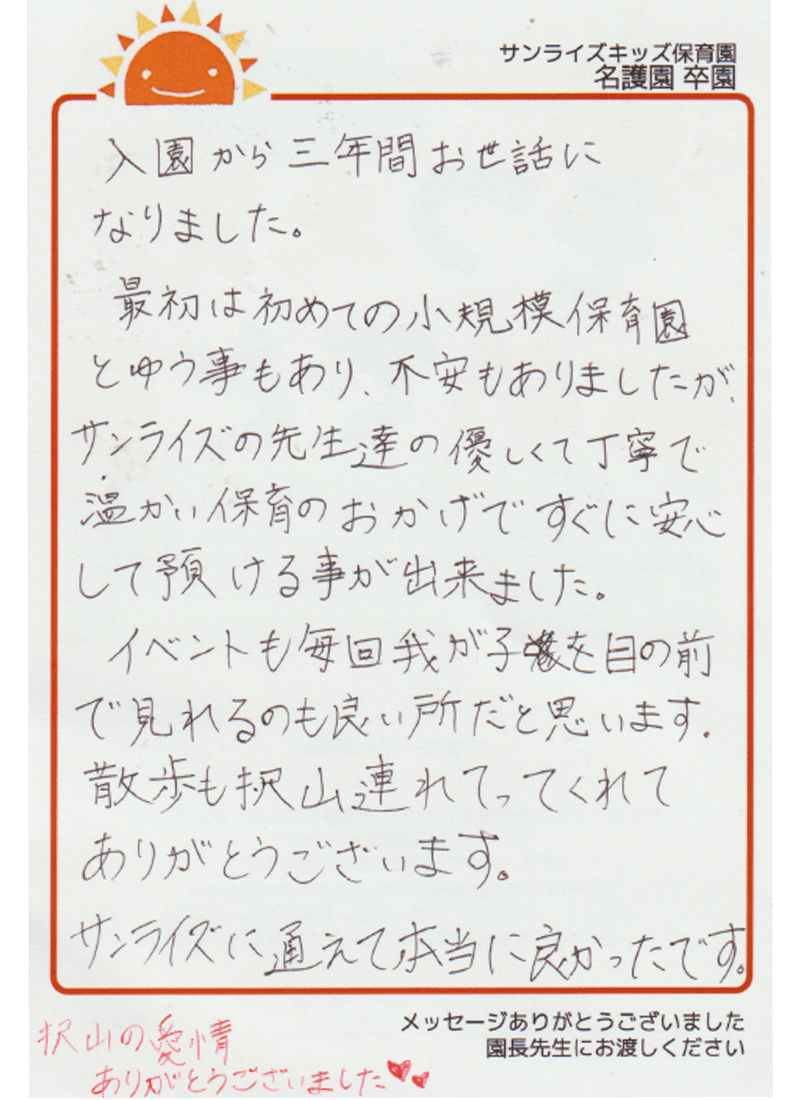 サンライズキッズ保育園
名護園 卒園
入園から三年間お世話に
なりました。
最初は初めての小規模保育園
とゆう事もあり、不安もありましたが、
サンライズの先生達の優しくて丁寧で
温かい保育のおかげですぐに安心
して預ける事が出来ました。
イベントも毎回我が子を目の前
で見れるのも良い所だと思います。
散歩も択山連れてってくれて
ありがとうございます。
サンライズに通えて本当に良かったです。
メッセージありがとうございました
園長先生にお渡しください
択山の愛情
ありがとうございました